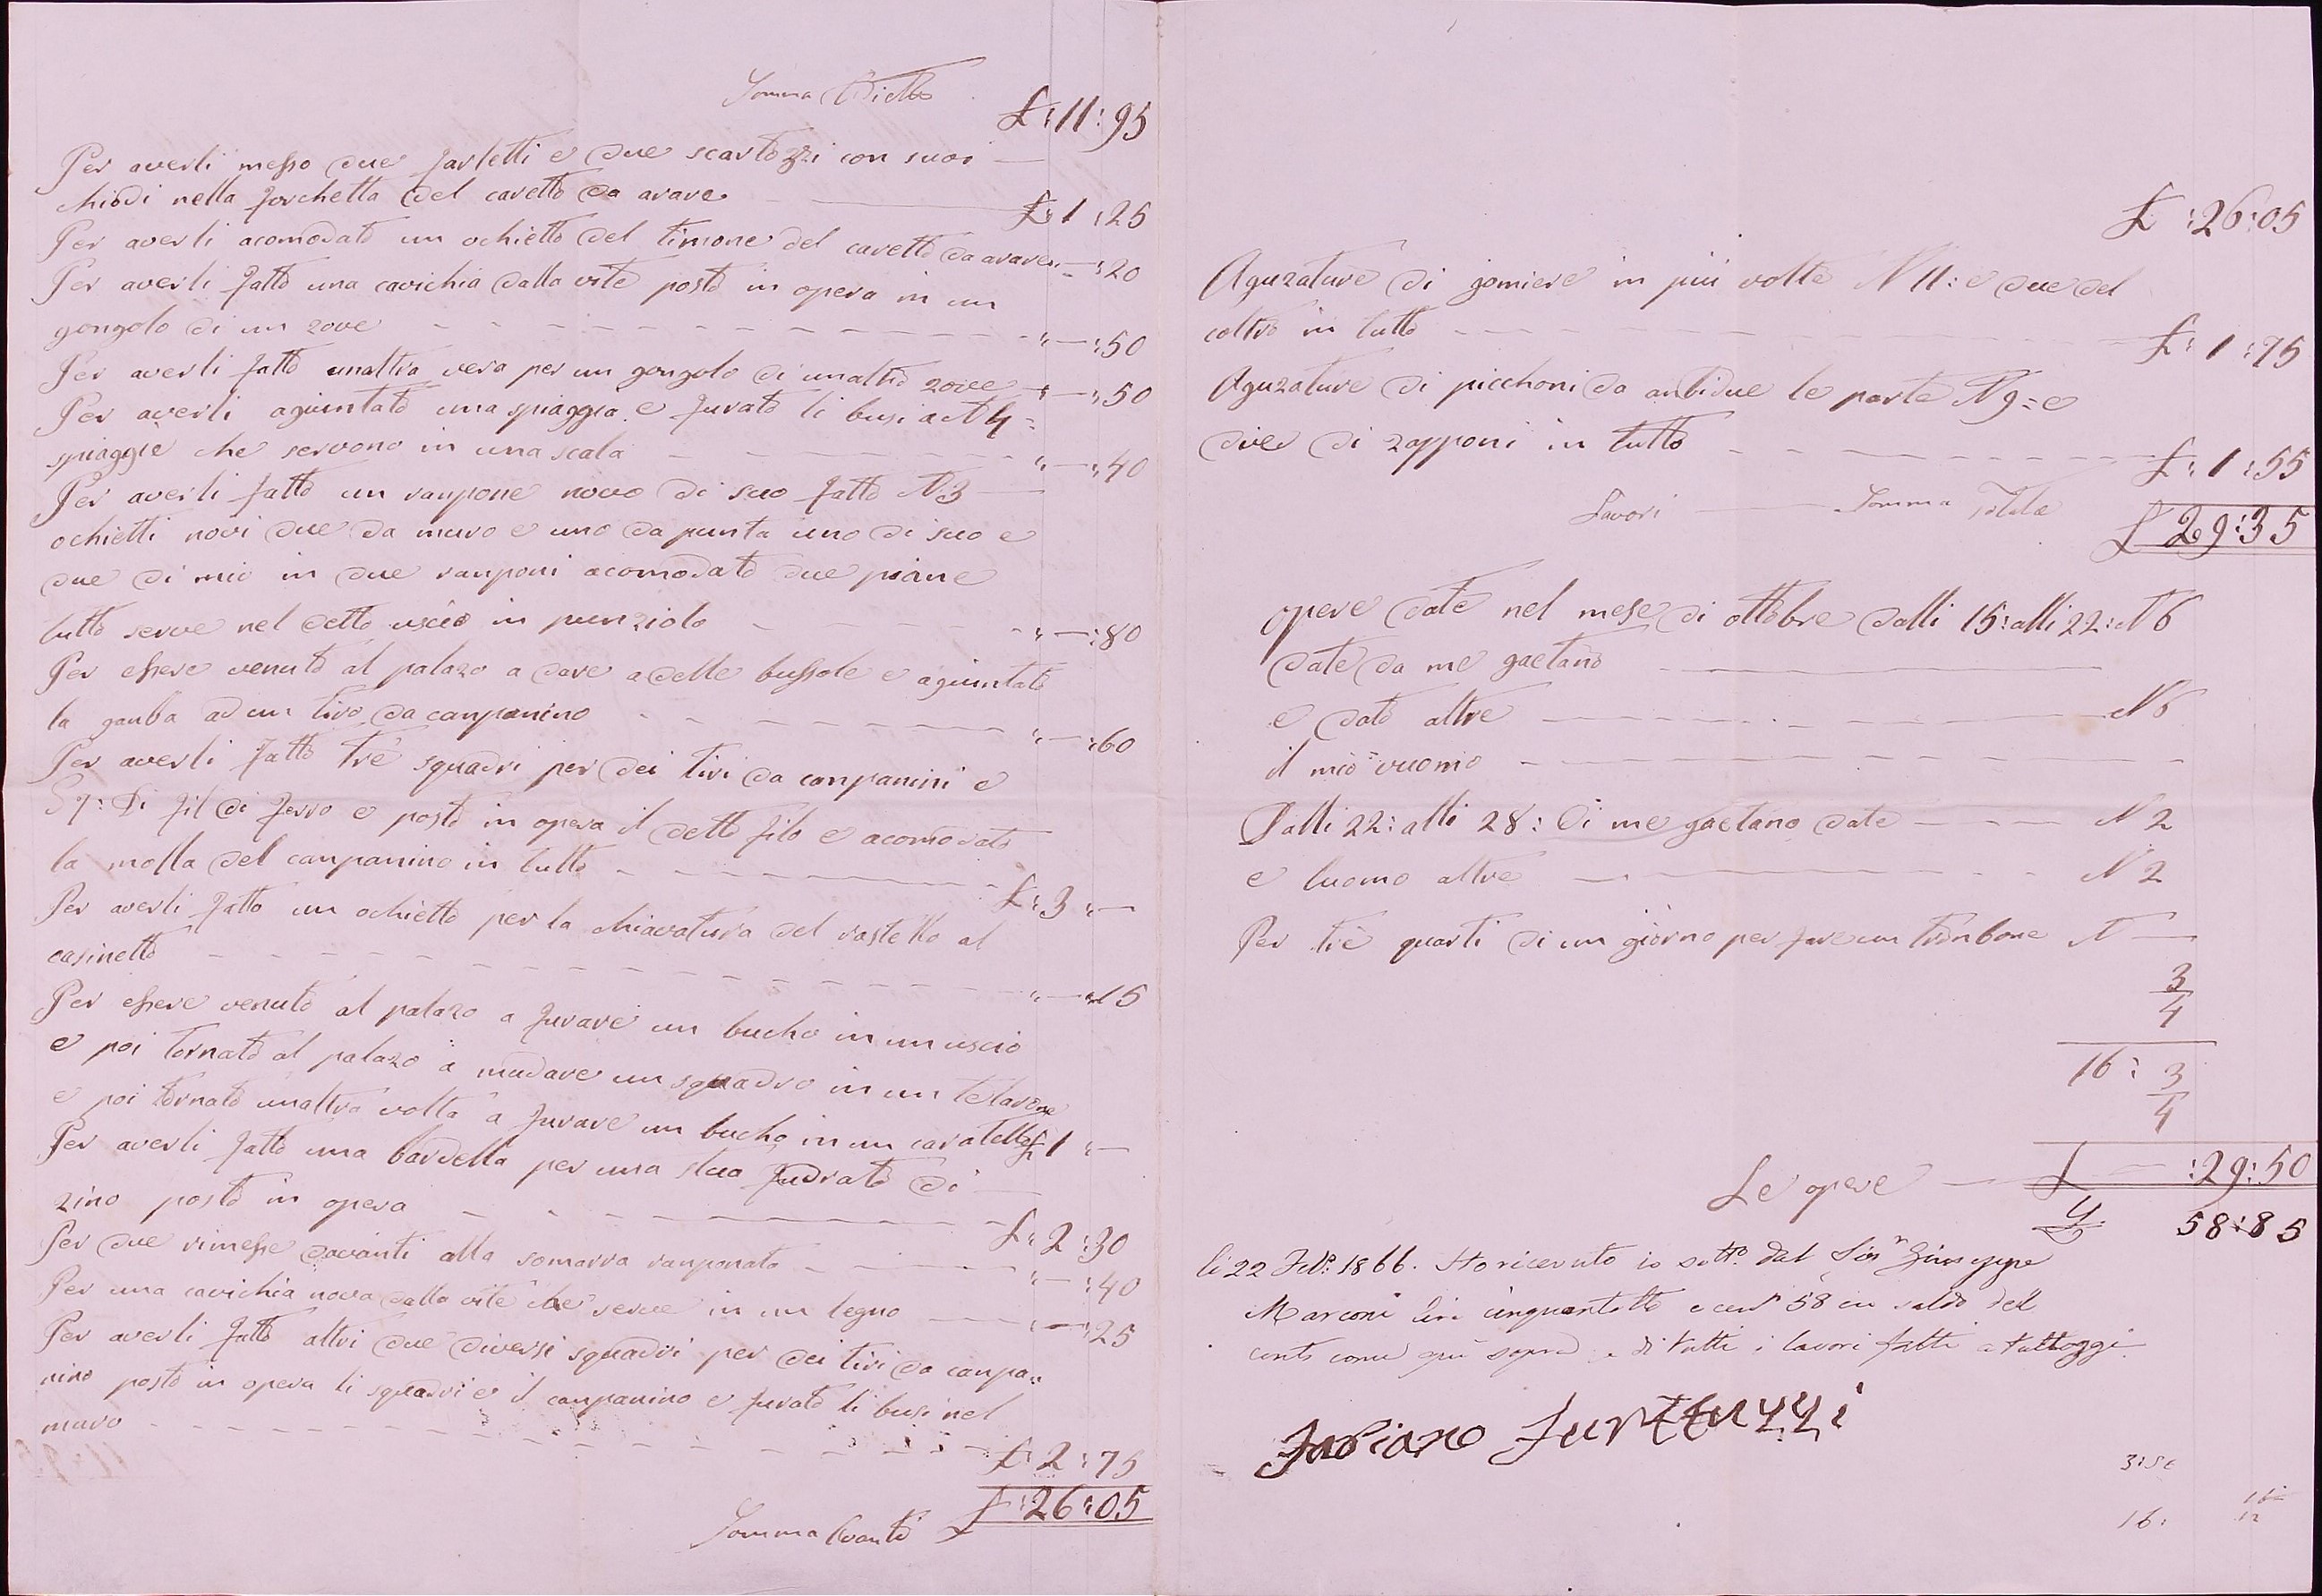 Somma Dietto £:11:95
Per averli messo due farletti e due scartozzi con suoi
chiodi nella forchetta del caretto da arare £:1:25
Per averli acomodato un ochietto del timone del caretto da arare "—:20
Per averli fatto una cavichia dalla vite posto in opera in un
gongolo di un zove "—:50
Per averli fatto unaltra vera per un gongolo di unaltro zove "—:50
Per averli agiuntato una spiaggia e furato li busi a N 4:
spiaggie che servono in una scala "—:40
Per averli fatto un ranpone novo di suo fatto N 3
ochietti novi due da muro e uno da punta uno di suo e
due di mio in due ranponi acomodato due piane
tutto serve nel detto uscio in punziolo "—:80
Per essere venuto al palazo a dare a delle bussole e agiuntato
la ganba ad un tiro da canpanino "—:60
Per averli fatto tre squadri per dei tiri da canpanini e
di fil di ferro e posto in opera il detto filo e acomodato
la molla del canpanino in tutto £:3:—
Per averli fatto un ochietto per la chiavatura del rastello al
casinetto "—:15
Per essere venuto al palazo a furare un bucho in un uscio
e poi tornato al palazo a mudare un squadro in un telarone
e poi tornato unaltra volta a furare un bucho in un caratello £1:—
Per averli fatto una bardella per una stua fudrato di
zino posto in opera £:2:30
Per due rimesse davanti alla somarra ranponato "—:40
Per una cavichia nova dalla vite che serve in un legno "—:25
Per averli fatto altri due diversi squadri per dei tiri da canpa"
nino posto in opera li squadri e il canpanino e furato li busi nel
muro £:2:75
Somma Avanti £:26:05
£:26:05
Aguzature di gomiere in più volte N 11: e due del
coltro in tutto £:1:75
Aguzature di picchoni da anbidue le parte N 9: e
due di zapponi in tutto £:1:55
Lavori Somma Totale £29:35
opere date nel mese di ottobre dalli 15: alli 22: N 6
date da me gaetano
e dato altre N 6
il mio vuomo
Dalli 22: alli 28: Di me gaetano date N 2
e luomo altre N 2
Per trè quarti di un giorno per fare un tronbone N —
3/4
16: 3/4
Le opere £ — :29:50
£ 58:85
li 22 Feb. 1866. Ho ricevuto io sotto. dal Sior Giuseppe
Marconi lire cinquantotto e cent 58 in saldo del
conto come qui sopra e di tutti i lavori fatti a tuttoggi
Fabiano Furttuzzi
16: